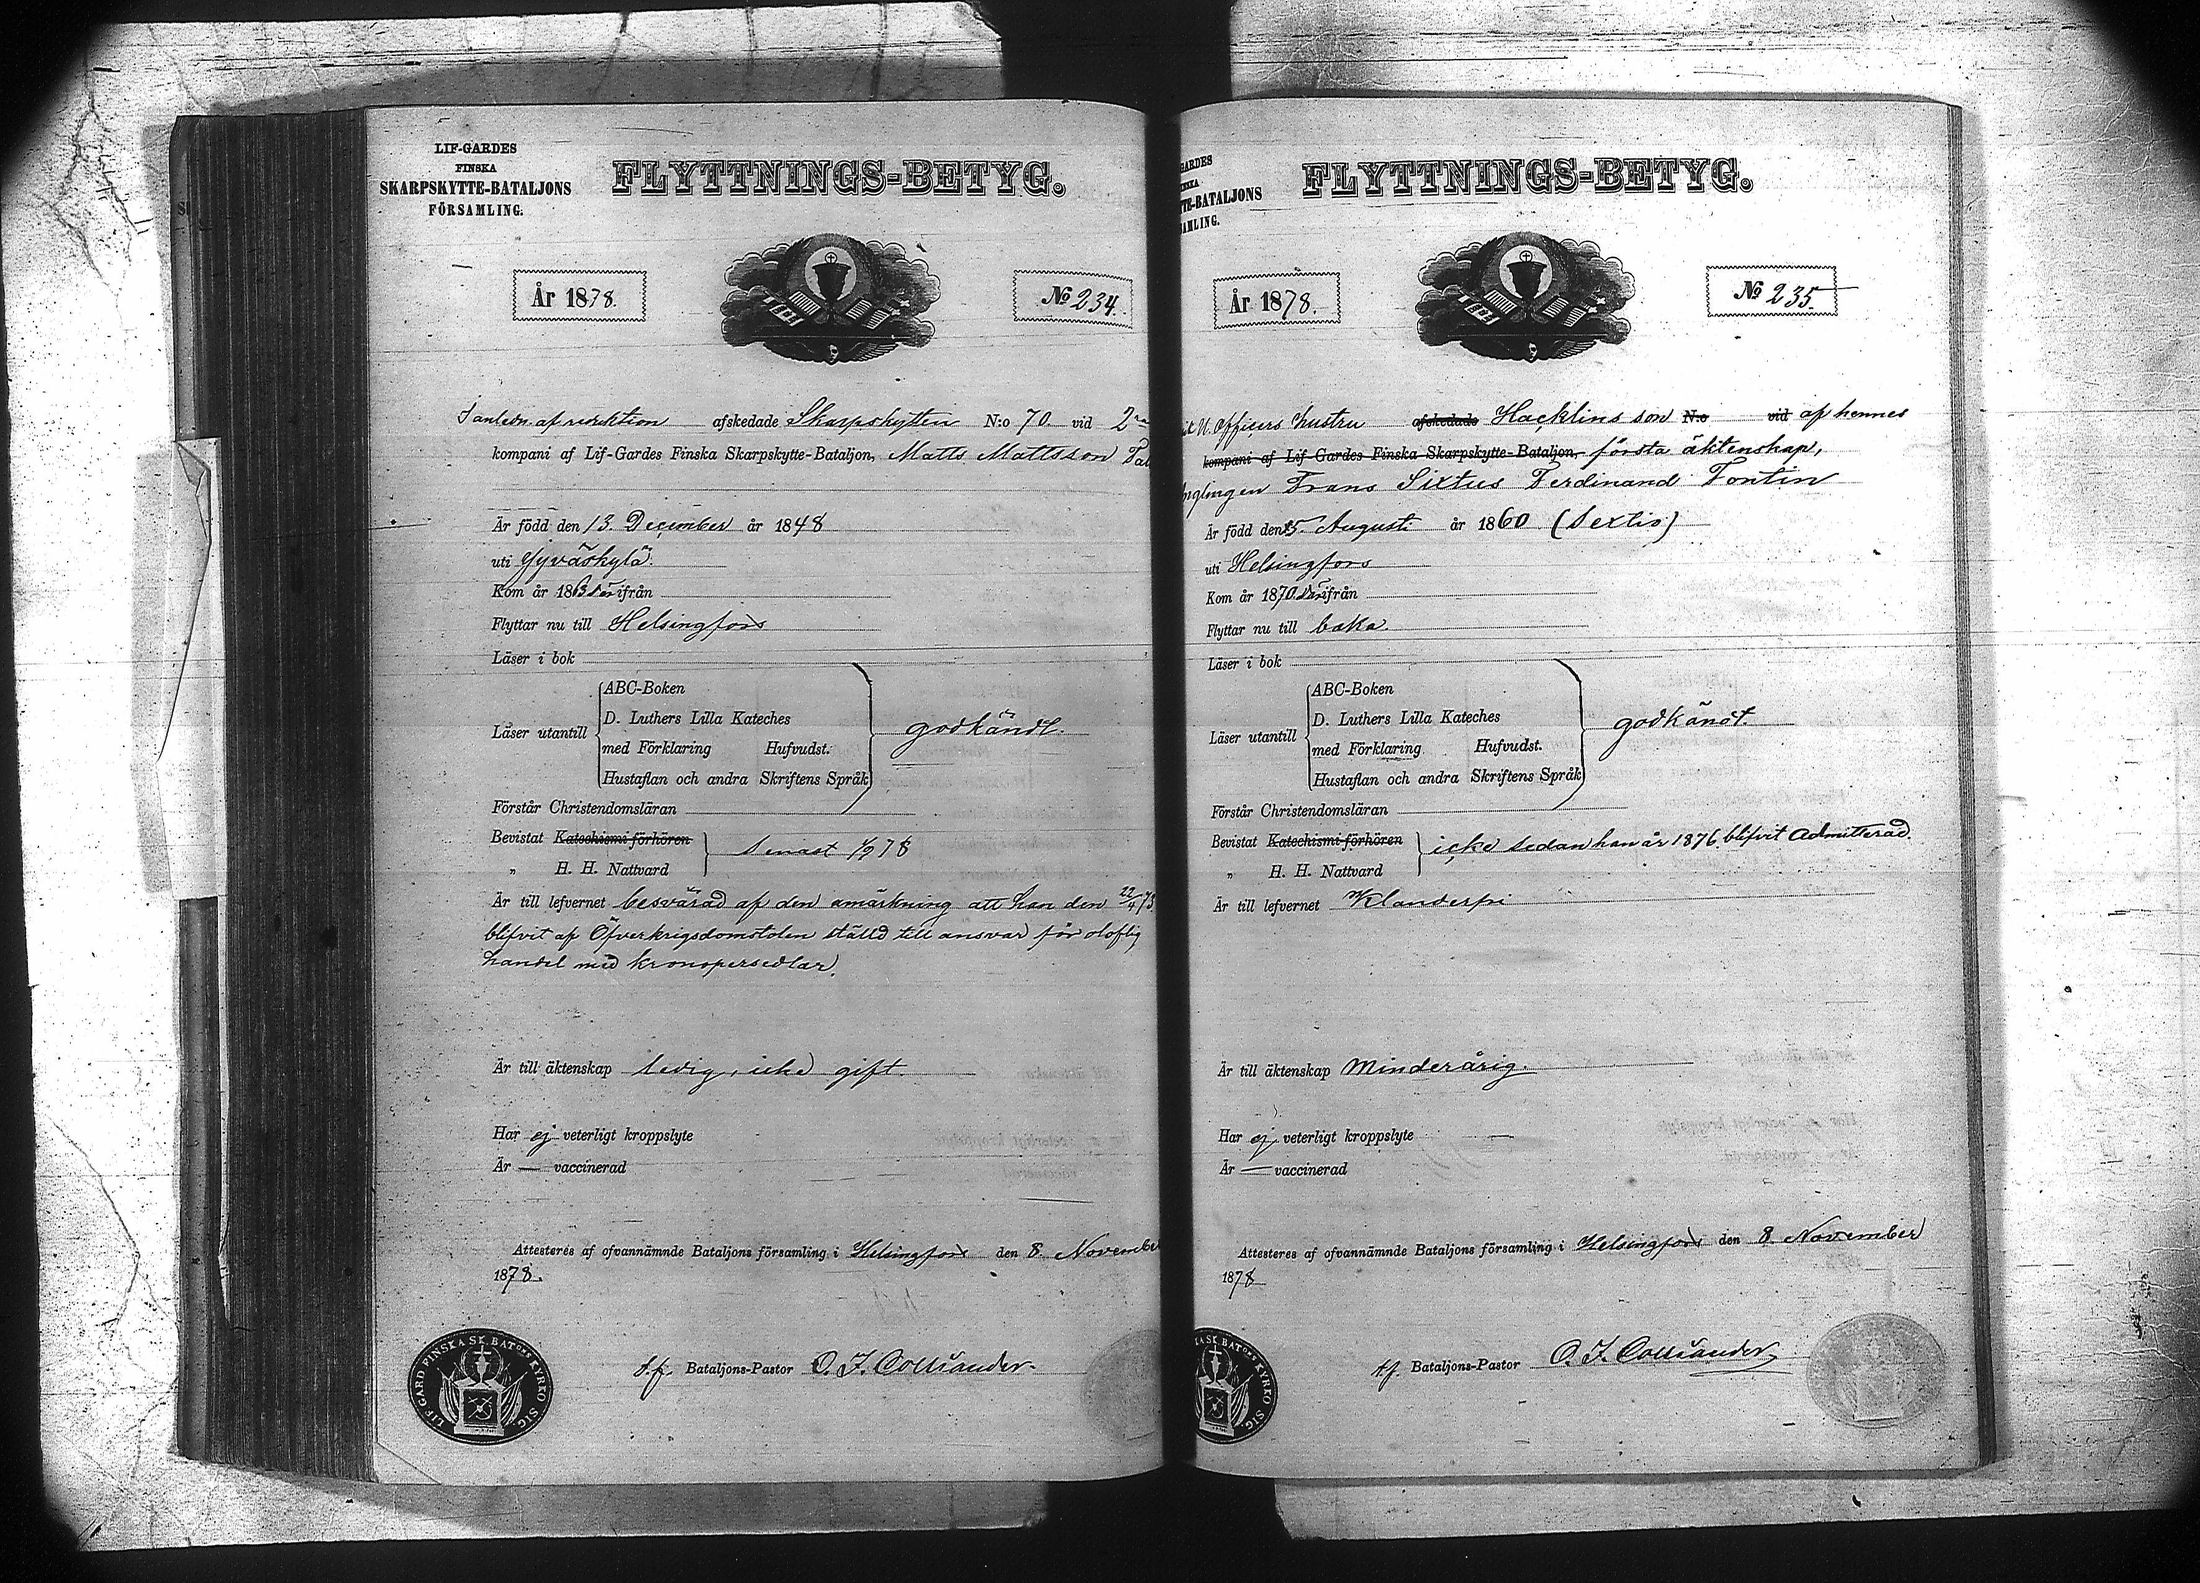 LIF-GARDES
FINSKA
SKARPSKYTTE-BATALJONS
FÖRSAMLING.
FLYTTNINGS-BETYG.
År 1878.
No 234.
afskedade Skarpskytten N:o 70 vid 2
kompani af Lif-Gardes Finska Skarpskytte-Bataljon, Matts Mattsson
Är född den 13. December år 1848
uti Jyväskylä.
Kom år 18 ifrån
Flyttar nu till Helsingfors
Läser i bok
Läser utantill
ABC-Boken
D. Luthers Lilla Kateches
med Förklaring Hufvudst.
Hustaflan och andra Skriftens Språk
godkändt.
Förstår Christendomsläran
Bevistat Katechismi förhören
" H. H. Nattvard
senast 78
Är till lefvernet besvärad af den anmärkning att han den 22/4 73
blifvit af Öfverkrigsdomstolen ställd till ansvar för oloflig
handel med kronopersedlar.
Är till äktenskap ledig, icke gift.
Har ej veterligt kroppslyte
Är — vaccinerad
Attesteres af ofvannämnde Bataljons församling i Helsingfors den 8. November
1878.
t.f. Bataljons-Pastor O. F. Colliander.
LIF GARD FINSKA SK. BATONS KYRKO SIG.
GARDES
TE-BATALJONS
AMLING.
FLYTTNINGS-BETYG.
År 1878.
No 235.
U. Officers hustru afskedade Hacklins son N:o vid af hennes
kompani af Lif-Gardes Finska Skarpskytte-Bataljon, första äktenskap,
ynglingen Frans Sixtus Ferdinand Fontin
Är född den 5. Augusti år 1860 (Sextio)
uti Helsingfors
Kom år 1870 ifrån
Flyttar nu till baka.
Läser i bok
Läser utantill
ABC-Boken
D. Luthers Lilla Kateches
med Förklaring Hufvudst.
Hustaflan och andra Skriftens Språk
godkändt.
Förstår Christendomsläran
Bevistat Katechismi förhören
" H. H. Nattvard
icke sedan han år 1876 blifvit admitterad.
Är till lefvernet Klanderfri
Är till äktenskap Minderårig.
Har ej veterligt kroppslyte
Är — vaccinerad
Attesteres af ofvannämnde Bataljons församling i Helsingfors den 8. November
1878
t.f. Bataljons-Pastor O. F. Colliander
SK. BATONS KYRKO SIG.